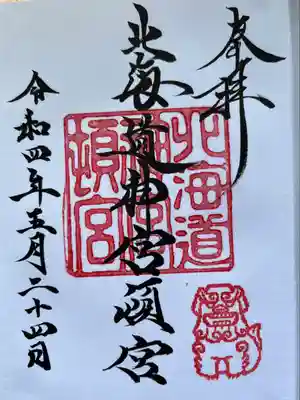 奉拝
北海道神宮頓宮
北海道神宮頓宮
令和四年五月二十四日